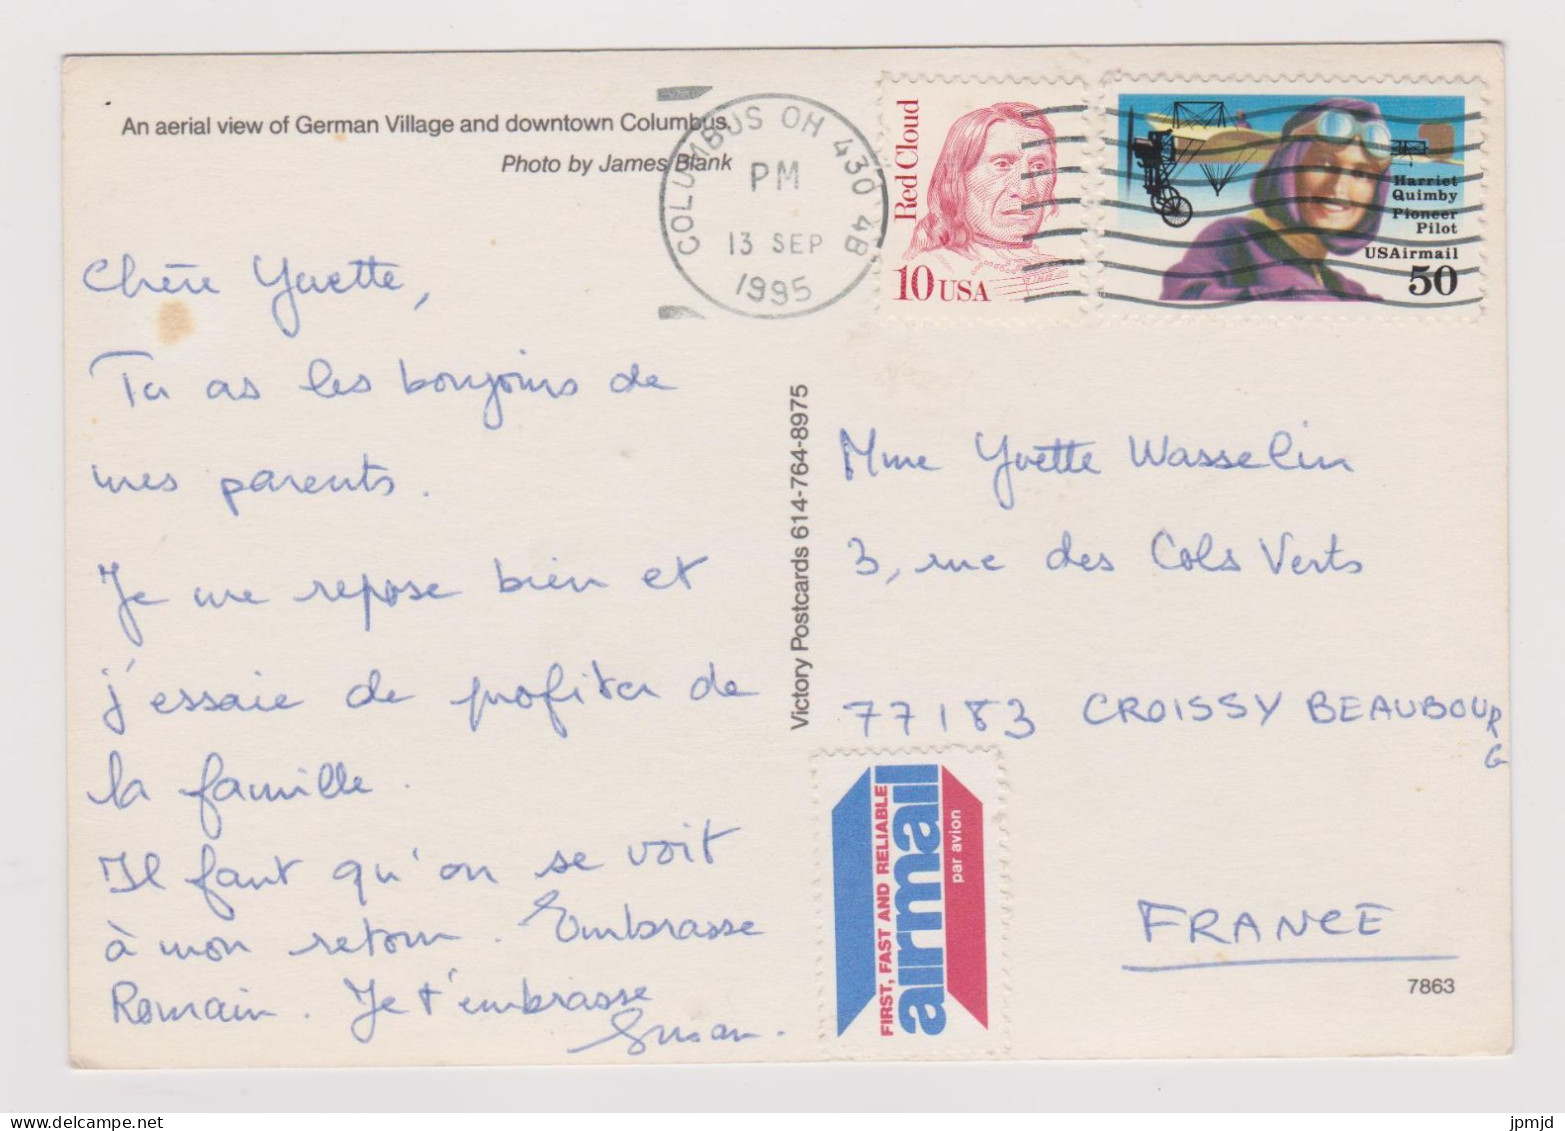 An aerial view of German Village and downtown Columbus.
Photo by James Blank
COLUMBUS OH 430 4B
PM
13 SEP
1995
Red Cloud
10 USA
Harriet
Quimby
Pioneer
Pilot
USAirmail
50
Chère Yvette,
Tu as les bonjours de
mes parents.
Je me repose bien et
j'essaie de profiter de
la famille.
Il faut qu'on se voit
à mon retour. Embrasse
Romain. Je t'embrasse
Susan.
Victory Postcards 614-764-8975
Mme Yvette Wasselin
3, rue des Cols Verts
77183 CROISSY BEAUBOURG
FRANCE
FIRST, FAST AND RELIABLE
airmail
par avion
7863
delcampe.net
jpmjd